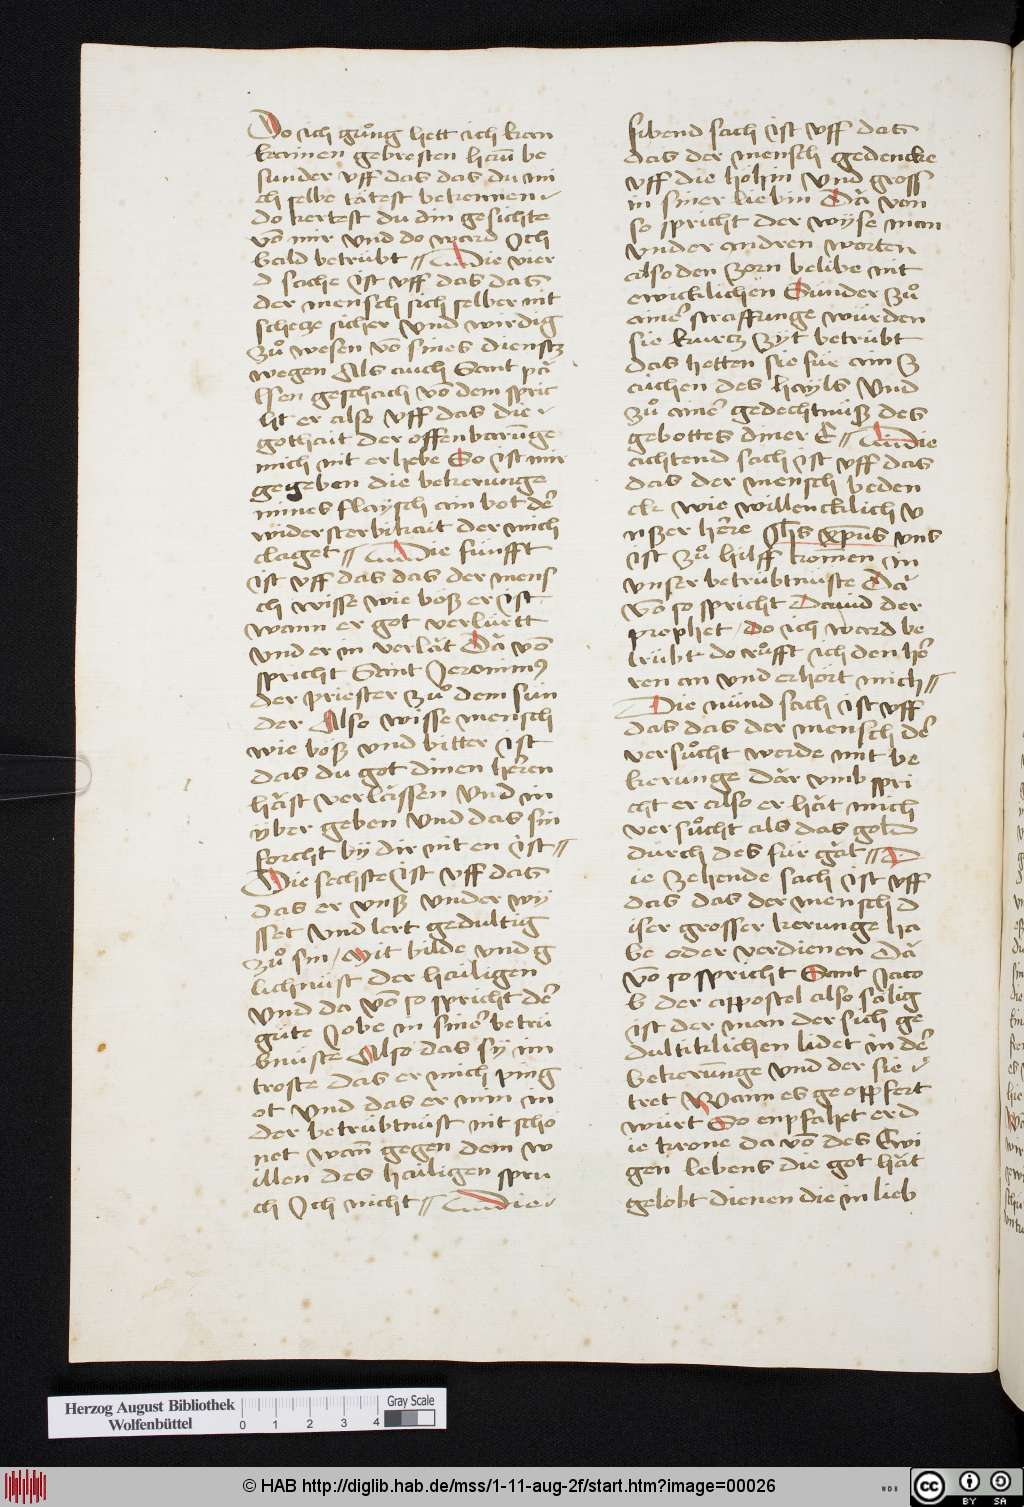 Do ich gnuͦg hett ich kan
kainen gebresten herū be
sunder vff das das du mi
ch selbe tätest bekennen
do kertest du din gesichte
vō mir vnd do ward Ich
bald betrübt // Die vier
d sache ist vff das das
der mensch sich selber nit
schecze sicher vnd wirdig
zuͦ wesen vō sines dienstz
wegen Als auch Sant pa
lsen geschach vō dem spric
ht er also vff das die
gothait der offenbarūnge
mich nit erhebe So ist mir
gegeben die bekerunge
mines flaysch ain bot der
widersterbikait der mich
claget // Die fünfft
ist vff das das der mens
ch wisse wie böß er ist
wann er got verlürtt
vnd er in verlät Dā vō
spricht Sant Jeronimus
der priester zuͦ dem sün
der Also wisse mensch
wie böß vnd bitter ist
das du got dinen heren
häst verlässen vnd in
v̈ber geben vnd das sin
forcht bÿ dir nit en ist //
Die sechste ist vff das
das er vnß vnder wÿ
sset vnd lert gedultig
zuͦ sin / Mit bilde vnd g
lichnüst der hailigen
vnd da vō so spricht der
güte Jobe in siner betrü
bnüste Also das sÿ im
troste das er mich ping
ot vnd das er min in
der betrübtnüst nit scho
net wan̄ gegen dem w
illen des hailigen spru
ch Ich nicht // Die
sibend sach ist vff das
das der mensch gedencke
vff die höhin vnd gross
in siner liebin Dā von
so spricht der wÿse man
vnder andren worten
also den zorn belibe nit
ewicklichen Sünder zuͦ
ainer straffunge würden
sie kurcz zÿt betrübt
das hetten sie für ain z
aichen des hayls vnd
zuͦ ainer gedechtnüß des
gebottes diner E // Die
achtend sach ist vff das
das der mensch beden
cke wie willencklich v
nßer here Jhs xp̄us vns
ist zuͦ hilff komen in
vnser betrübtnüste Dā
vō so spricht Dauid der
prophet / Do ich ward be
trübt do ruͦfft ich den her
ren an vnd erhört mich //
Die nünd sach ist vff
das das der mensch der
versuͦcht werde mit be
kerunge Där vmb spri
cht er also er hāt mich
versuͦcht als das gold
durch des für gāt // D
ie zehende sach ist vff
das das der mensch d
iser grosser kerunge ha
be oder verdienen Dā
vō so spricht Sant Jaco
b der appostel also sälig
ist der man der sich ge
dultiklichen lidet in der
bekerūnge vnd der sie
tret Wann es geopffert
würt So enpfahet er d
ie krone da vō des Ewi
gen lebens die got hāt
gelobt dienen die in lieb
Herzog August Bibliothek
Wolfenbüttel
0 1 2 3 4
Gray Scale
© HAB http://diglib.hab.de/mss/1-11-aug-2f/start.htm?image=00026
WDB
cc BY SA